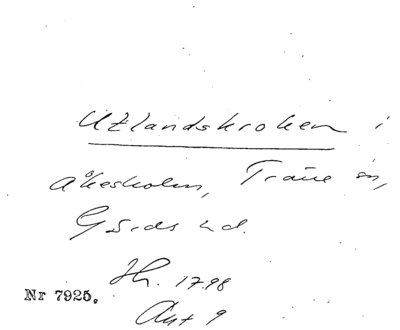 Utlandskroken i
Åkesholm, Träne sn,
Gärds hd.
Hr. 1798
Akt 9
Nr 7925.